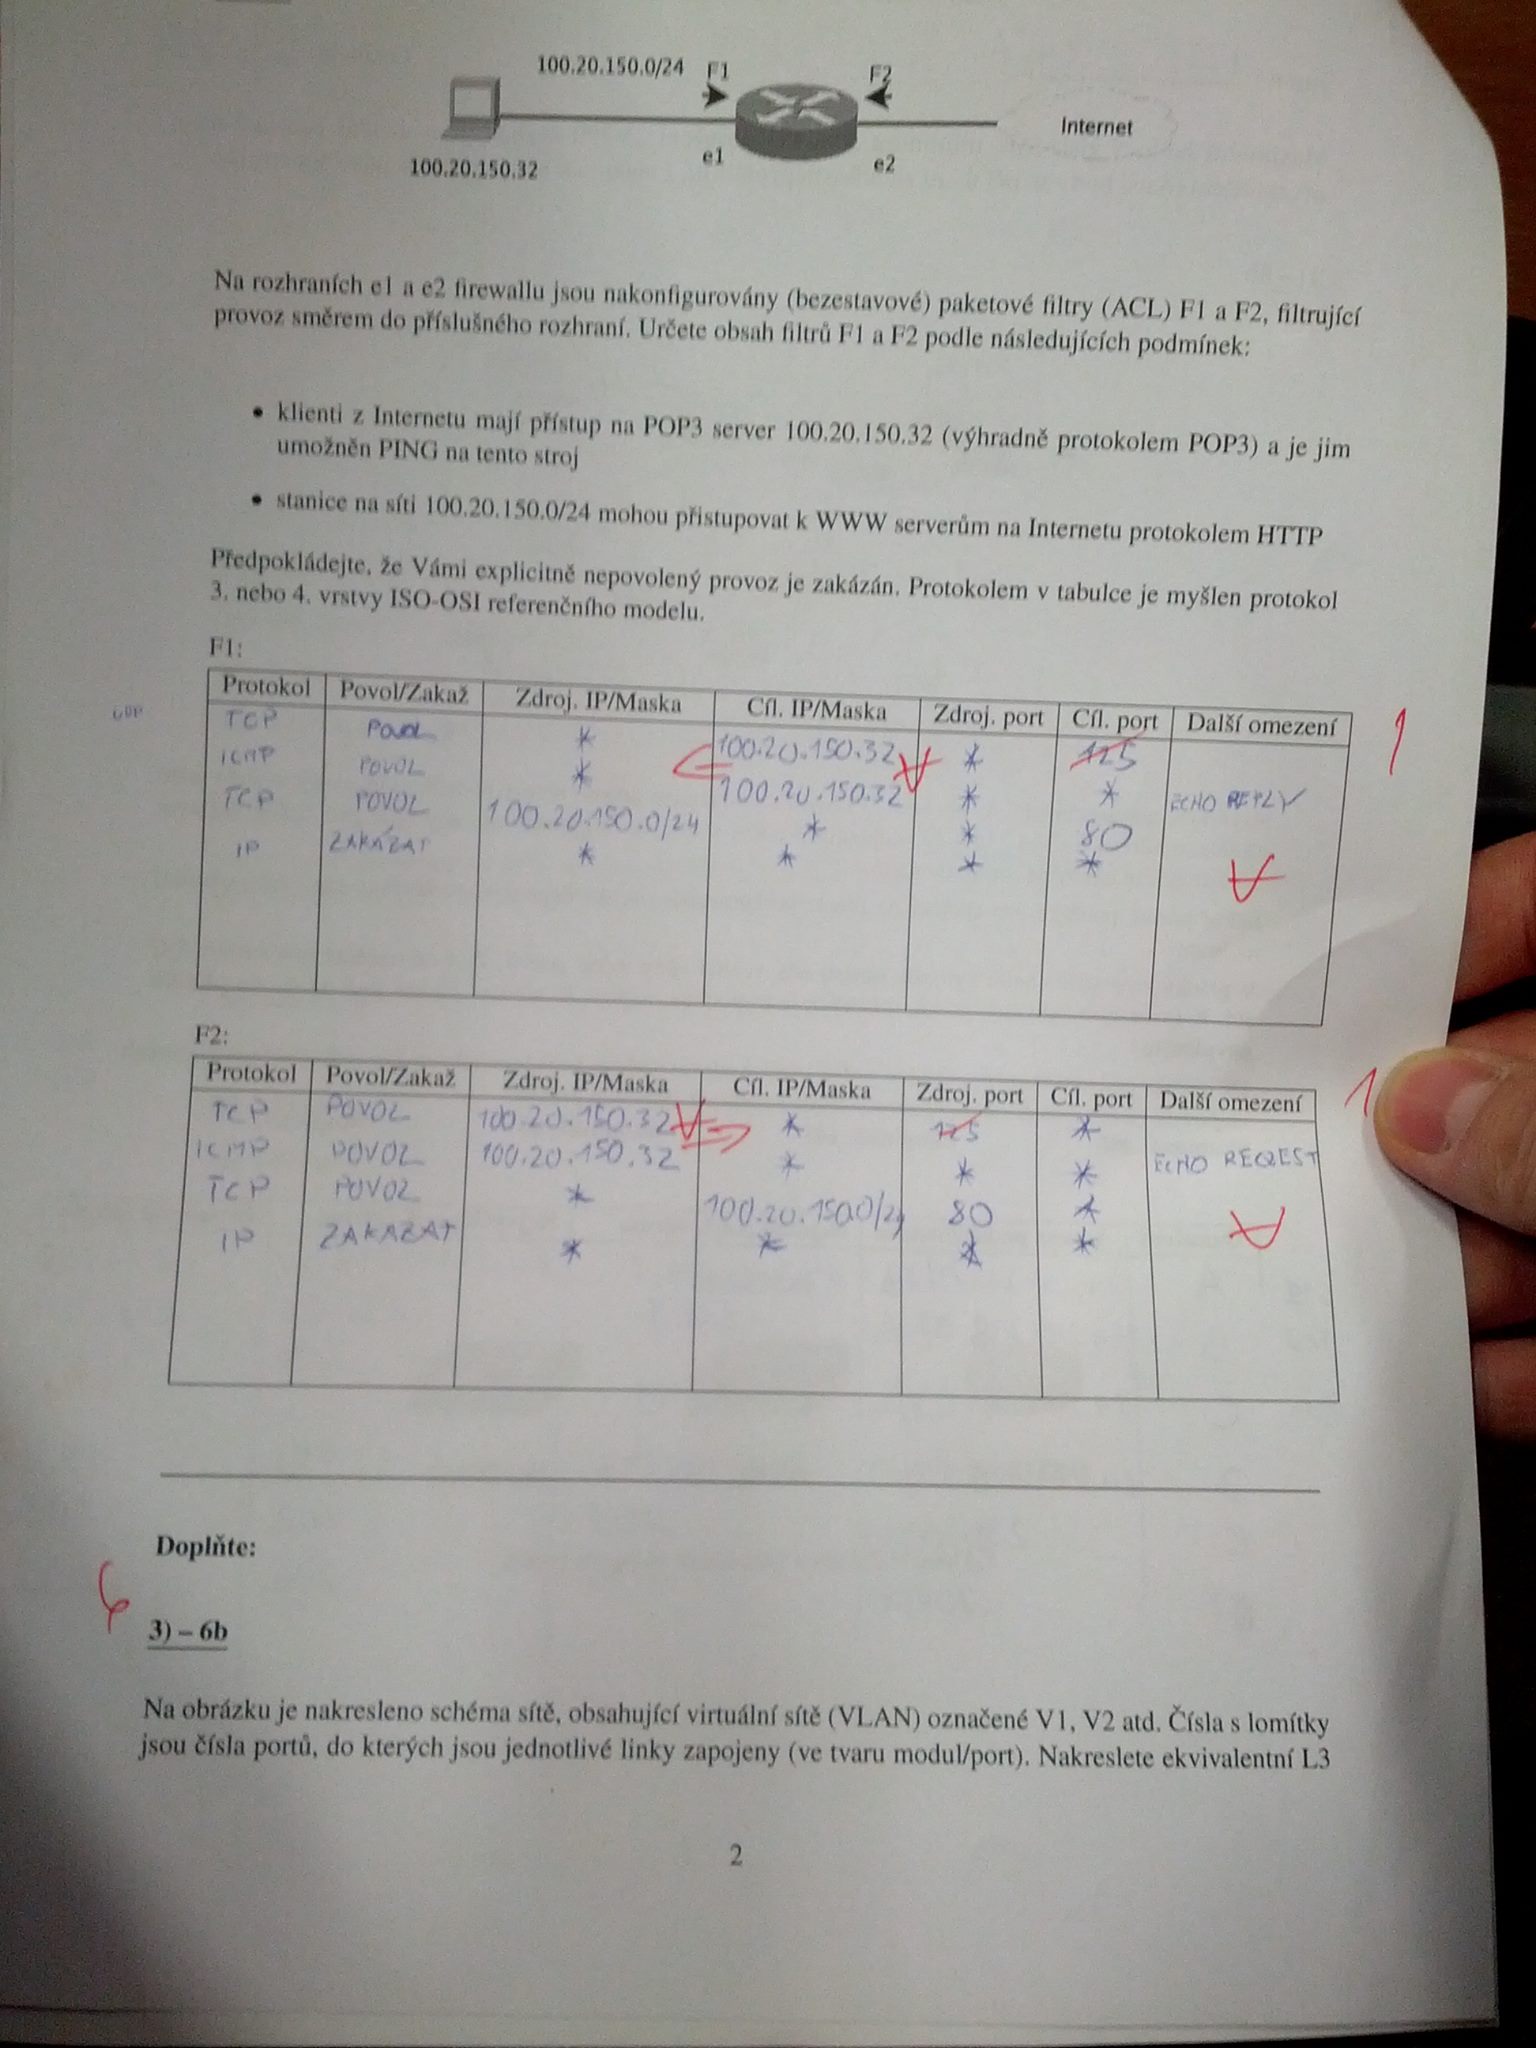 100.20.150.0/24 F1 F2
Internet
e1 e2
100.20.150.32
Na rozhraních e1 a e2 firewallu jsou nakonfigurovány (bezestavové) paketové filtry (ACL) F1 a F2, filtrující
provoz směrem do příslušného rozhraní. Určete obsah filtrů F1 a F2 podle následujících podmínek:
• klienti z Internetu mají přístup na POP3 server 100.20.150.32 (výhradně protokolem POP3) a je jim
umožněn PING na tento stroj
• stanice na síti 100.20.150.0/24 mohou přistupovat k WWW serverům na Internetu protokolem HTTP
Předpokládejte, že Vámi explicitně nepovolený provoz je zakázán. Protokolem v tabulce je myšlen protokol
3. nebo 4. vrstvy ISO-OSI referenčního modelu.
F1:
Protokol Povol/Zakaž Zdroj. IP/Maska Cíl. IP/Maska Zdroj. port Cíl. port Další omezení
TCP Povol * 100.20.150.32 * 125
ICMP POVOL * 100.20.150.32 * * ECHO REPLY
TCP POVOL 100.20.150.0/24 * * 80
IP ZAKÁZAT * * * *
1
F2:
Protokol Povol/Zakaž Zdroj. IP/Maska Cíl. IP/Maska Zdroj. port Cíl. port Další omezení
TCP POVOL 100.20.150.32 * 125 *
ICMP POVOL 100.20.150.32 * * * ECHO REQEST
TCP POVOL * 100.20.150.0/24 80 *
IP ZAKAZAT * * * *
1
Doplňte:
6
3) – 6b
Na obrázku je nakresleno schéma sítě, obsahující virtuální sítě (VLAN) označené V1, V2 atd. Čísla s lomítky
jsou čísla portů, do kterých jsou jednotlivé linky zapojeny (ve tvaru modul/port). Nakreslete ekvivalentní L3
2